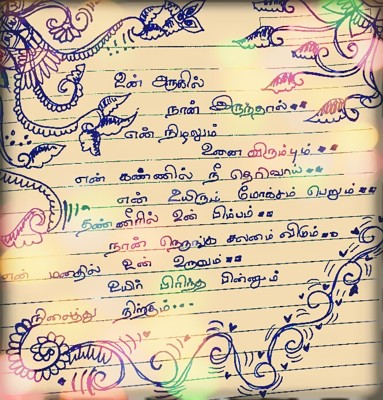 உன் அருகில்
நான் இருந்தால்..
என் நிழலும்
உனை விரும்பும்..
என் கண்ணில் நீ தெரிவாய்..
என் உயிரும் மோட்சம் பெறும்..
தண்ணீரில் உன் பிம்பம்..
நான் நெருங்க சலனம் விடும்..
என் மனதில் உன் உருவம்..
உயிர் பிரிந்த பின்னும்
நிலைத்து நிற்கும்...